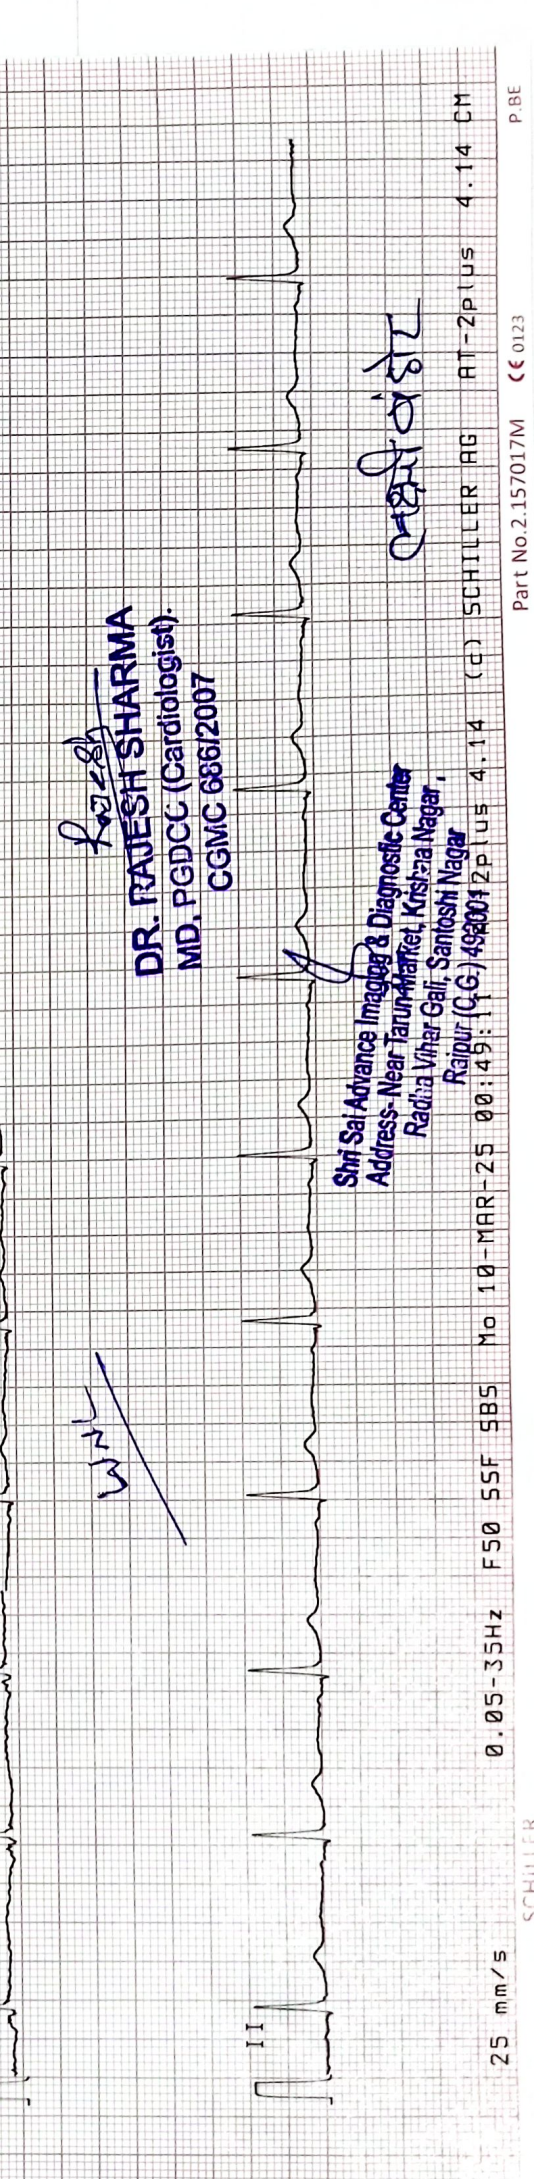 WNL
Rajesh
DR. RAJESH SHARMA
MD, PGDCC (Cardiologist).
CGMC 686/2007
II
Shri Sai Advance Imaging & Diagnostic Center
Address- Near Tarun Market, Krishna Nagar,
Radha Vihar Gali, Santoshi Nagar
Raipur (C.G.) 492001
25 mm/s 0.05-35Hz F50 SSF SBS Mo 10-MAR-25 00:49:11 2plus 4.14 (c) SCHILLER AG AT-2plus 4.14 CM
SCHILLER Part No.2.157017M CE 0123 P.BE